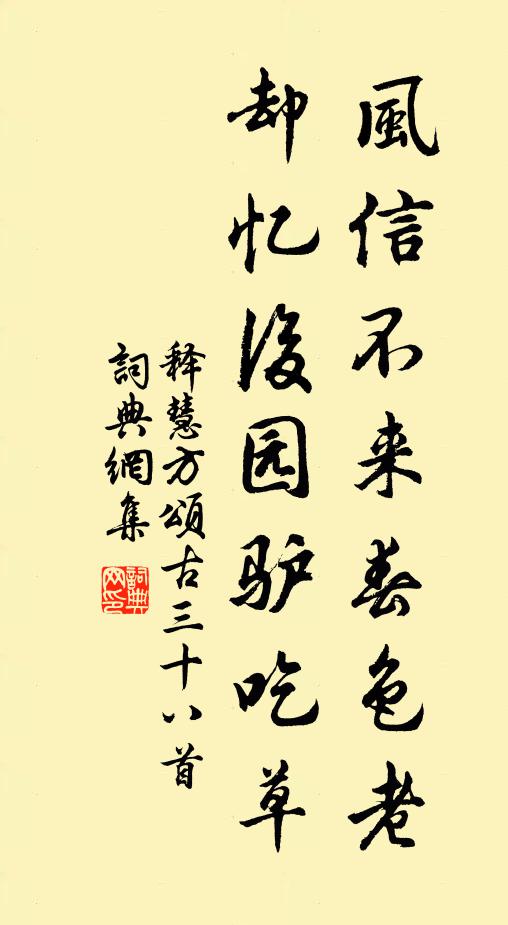 風信不来春色老
却忆後园驴吃草
释慧方頌古三十八首
詞典網集
詞典网印